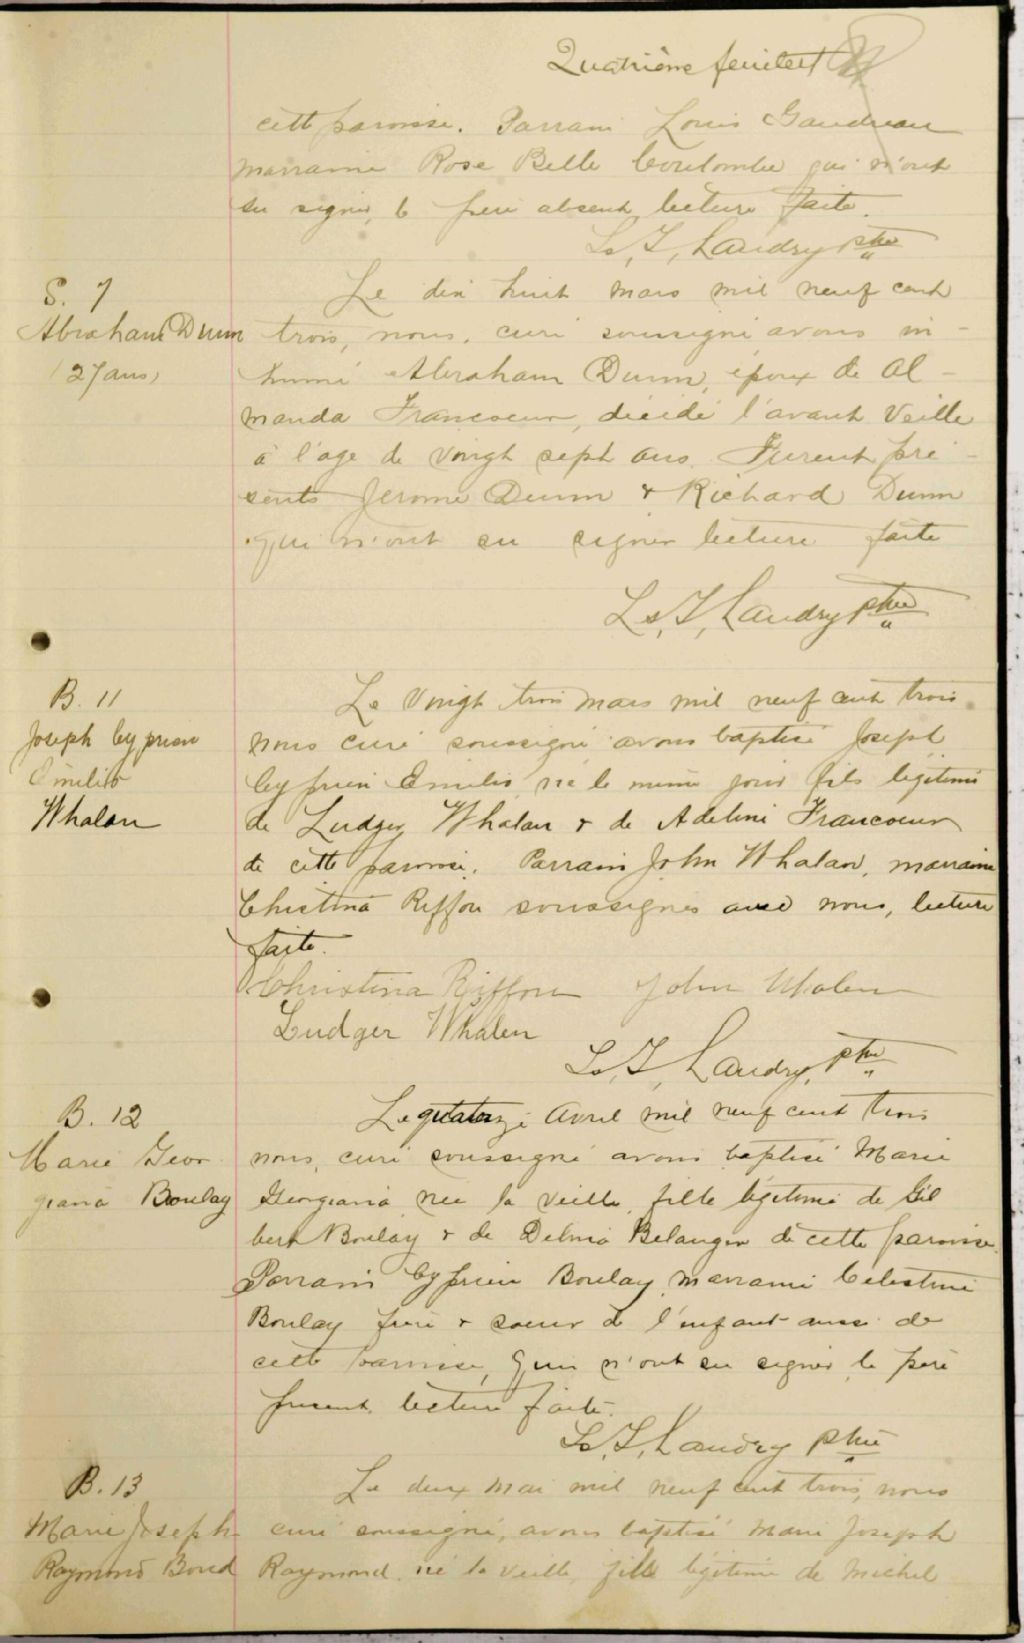 Quatrième feuillet
cette paroisse. Parrain Louis Gaudreau
marraine Rose Belle Coulombe qui n'ont
su signer, le père absent, lecture faite.
Ls, J, Landry ptre
S. 7
Abraham Dunn
27 ans,
Le dix huit mars mil neuf cent
trois, nous, curé soussigné avons in-
humé Abraham Dunn, époux de Al-
manda Francoeur, décédé l'avant veille
à l'age de vingt sept ans. Furent pré-
sents Jerome Dunn & Richard Dunn
qui n'ont su signer lecture faite
Ls, J, Landry ptre
B. 11
Joseph Cyprien
Emilio
Whalen
Le vingt trois mars mil neuf cent trois
nous curé soussigné avons baptisé Joseph
Cyprien Emilio, né le même jour fils légitime
de Ludger Whalen & de Adeline Francoeur
de cette paroisse. Parrain John Whalen, marraine
Christina Riffou soussignés avec nous, lecture
faite.
Christina Riffou John Whalen
Ludger Whalen
Ls, J, Landry, ptre
B. 12
Marie Geor
giana Boulay
Le quatorze avril mil neuf cent trois
nous, curé soussigné avons baptisé Marie
Georgiana née la veille, fille légitime de Gil
bert Boulay & de Delmia Belanger de cette paroisse.
Parrain Cyprien Boulay, marraine Celestine
Boulay frère & soeur de l'enfant aussi de
cette paroisse, qui n'ont su signer, le père
présent, lecture faite.
Ls, J, Landry ptre
B. 13
Marie Joseph
Raymond Bond
Le deux mai mil neuf cent trois, nous
curé soussigné, avons baptisé Marie Joseph
Raymond, né la veille, fille légitime de Michel